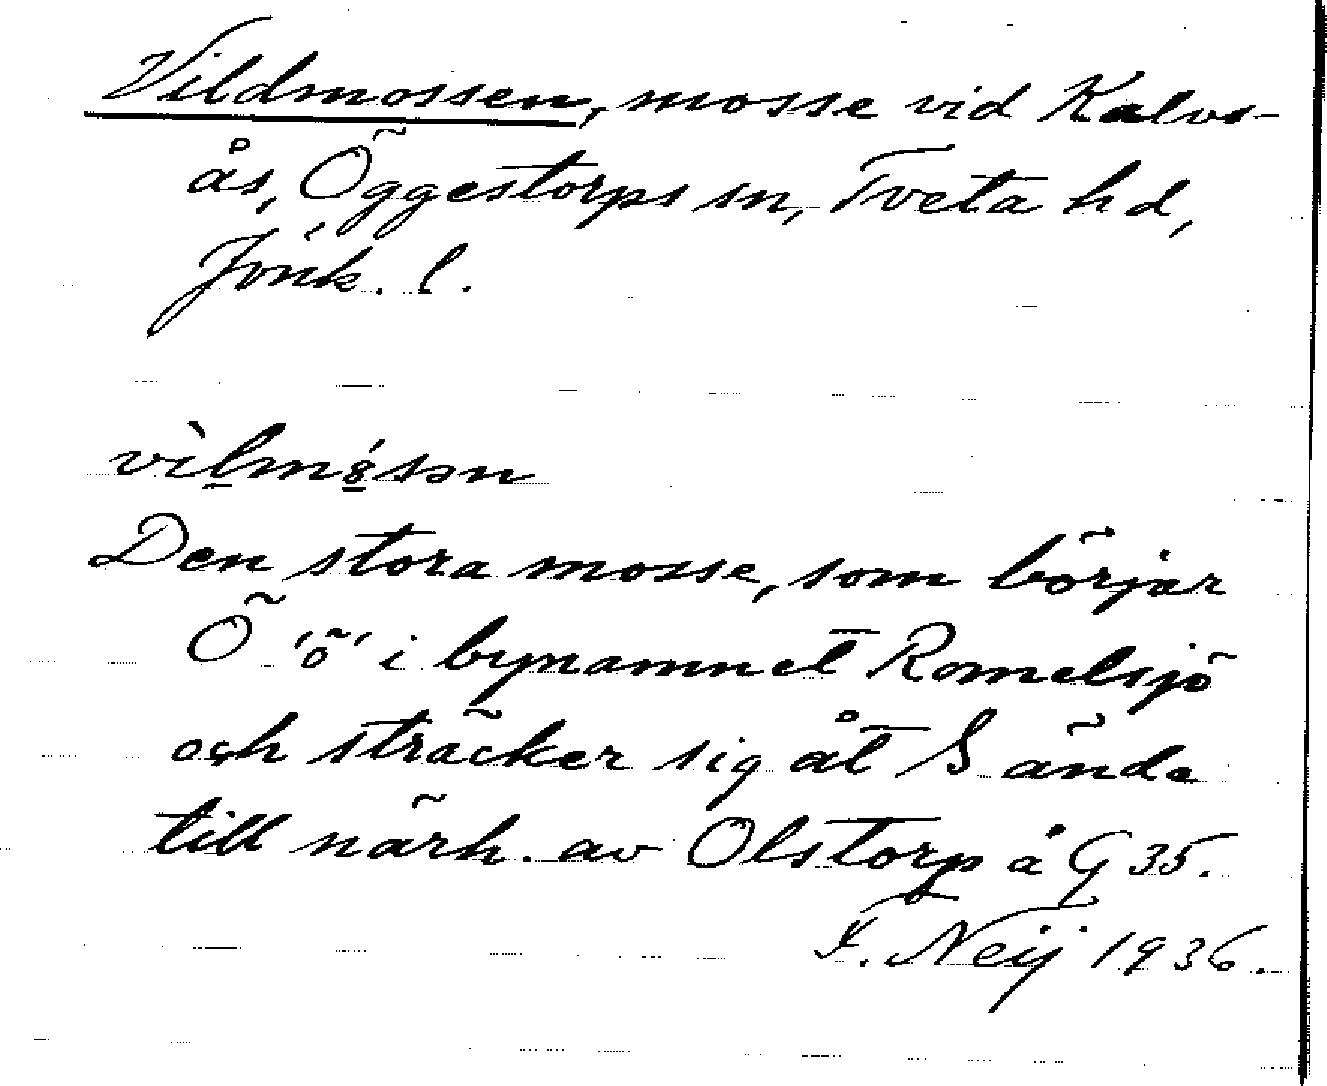 Vildmossen, mosse vid Kalvs-
ås, Öggestorps sn, Tveta hd,
Jönk. l.
vìlmó̱sən
Den stora mosse, som börjar
Ö 'ö' i bynamnet Romelsjö
och sträcker sig åt S ända
till närh. av Olstorp å G 35.
F. Neij 1936.